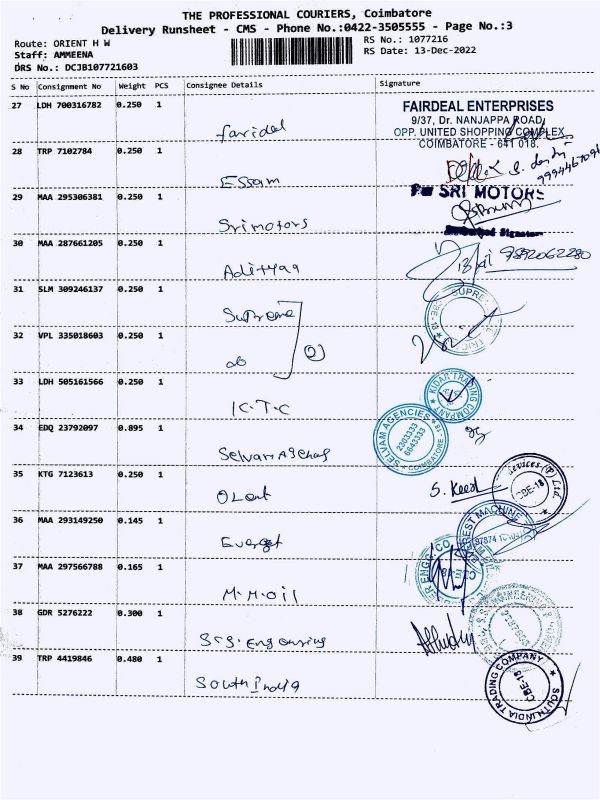 THE PROFESSIONAL COURIERS, Coimbatore
Delivery Runsheet - CMS - Phone No.:0422-3505555 - Page No.:3
Route: ORIENT H W
RS No.: 1077216
Staff: AMMEENA
RS Date: 13-Dec-2022
DRS No.: DCJB107721603
S No Consignment No Weight PCS Consignee Details Signature
27 LDH 700316782 0.250 1
Faridel
FAIRDEAL ENTERPRISES
9/37, Dr. NANJAPPA ROAD,
OPP. UNITED SHOPPING COMPLEX
COIMBATORE - 641 018.
28 TRP 7102784 0.250 1
Essam
29 MAA 295306381 0.250 1
Sri motors
For SRI MOTORS
Authorised Signatory
30 MAA 287661205 0.250 1
Adityaa
9892062280
31 SLM 309246137 0.250 1
Supreme
32 VPL 335018603 0.250 1
do
2
33 LDH 505161566 0.250 1
K.T.C
KIDAR TRADING COMPANY
34 EDQ 23792097 0.895 1
Selvam Agency
SELVAM AGENCIES
2303333
6643333
COIMBATORE - 18
35 KTG 7123613 0.250 1
Olent
S. Keed
Services (P) Ltd.
CBE-18
36 MAA 293149250 0.145 1
Everest
EVEREST MACHINE
37 MAA 297566788 0.165 1
M.M.oil
38 GDR 5276222 0.300 1
S.S. Engenring
39 TRP 4419846 0.480 1
South India
SOUTH INDIA TRADING COMPANY
CBE-18